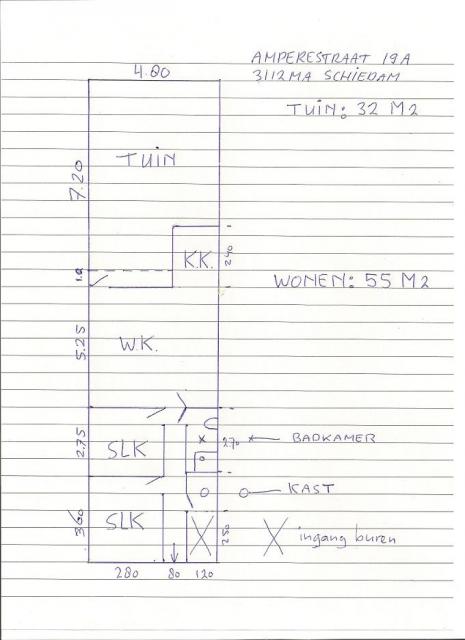 AMPERESTRAAT 19A
3112MA SCHIEDAM
4.80
TUIN: 32 M2
TUIN
7.20
K.K.
240
1.0
WONEN: 55 M2
5.25
W.K.
2.75
SLK
270
BADKAMER
KAST
SLK
3.60
250
ingang buren
280
80
120